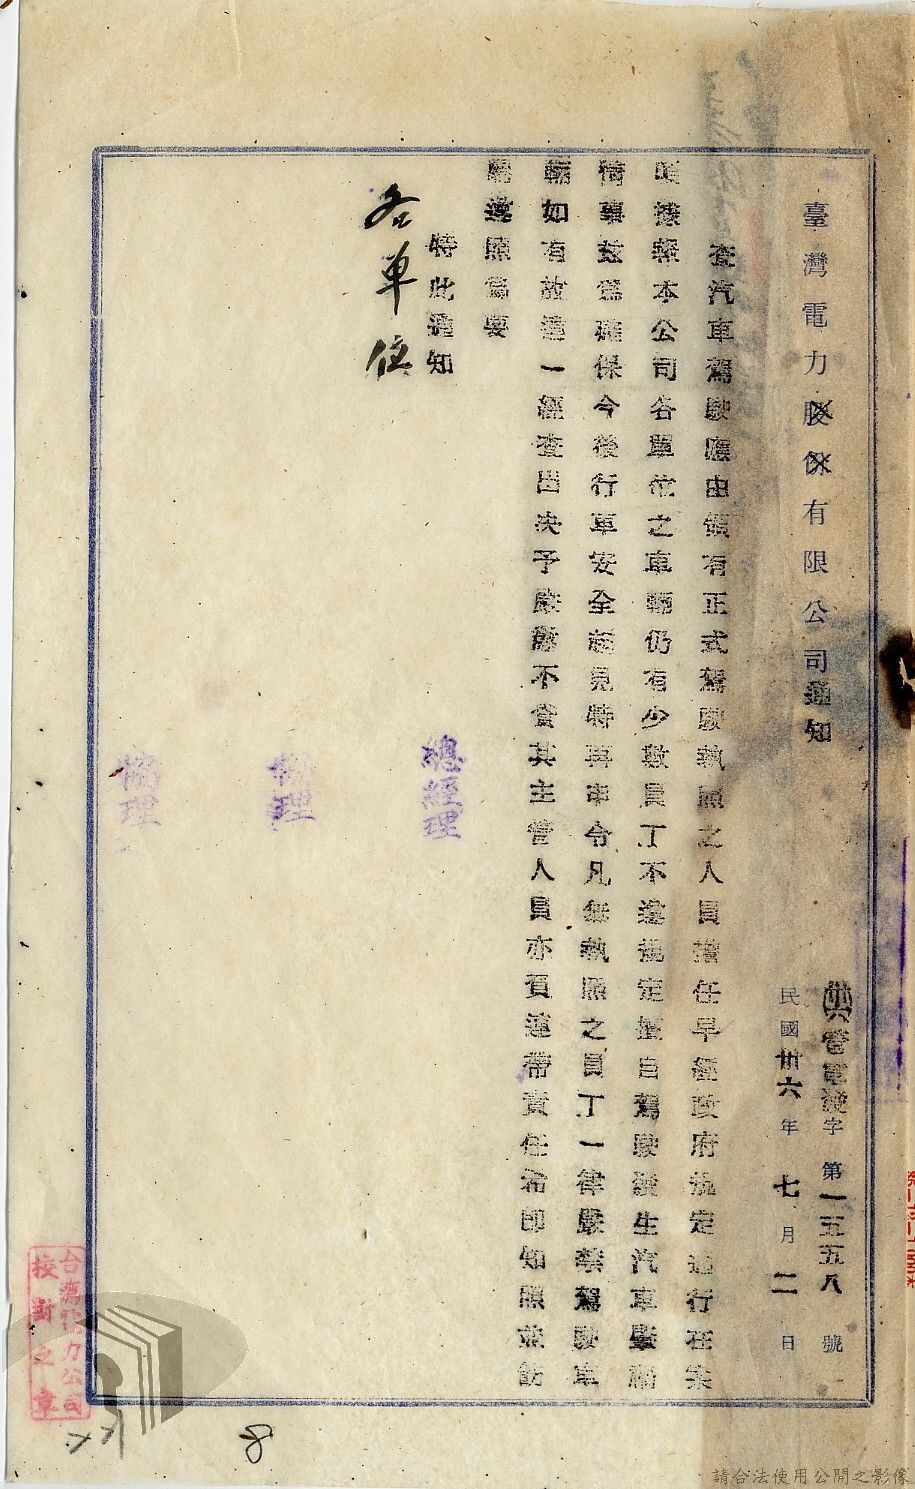 臺灣電力股份有限公司通知
卅六管電發字第一五五八號
民國卅六年七月二日
查汽車駕駛應由領有正式駕駛執照之人員擔任早經政府規定通行在案
據報本公司各單位之車輛仍有少數員丁不遵規定擅自駕駛發生汽車肇禍
情事茲為確保今後行車安全起見特再申令凡無執照之員丁一律嚴禁駕駛車
輛如有故違一經查出決予嚴懲不貸其主管人員亦負連帶責任希即知照並飭
屬遵照為要
特此通知
各單位
總經理
協理
協理
台灣電力公司
校對之章
8
請合法使用公開之影像